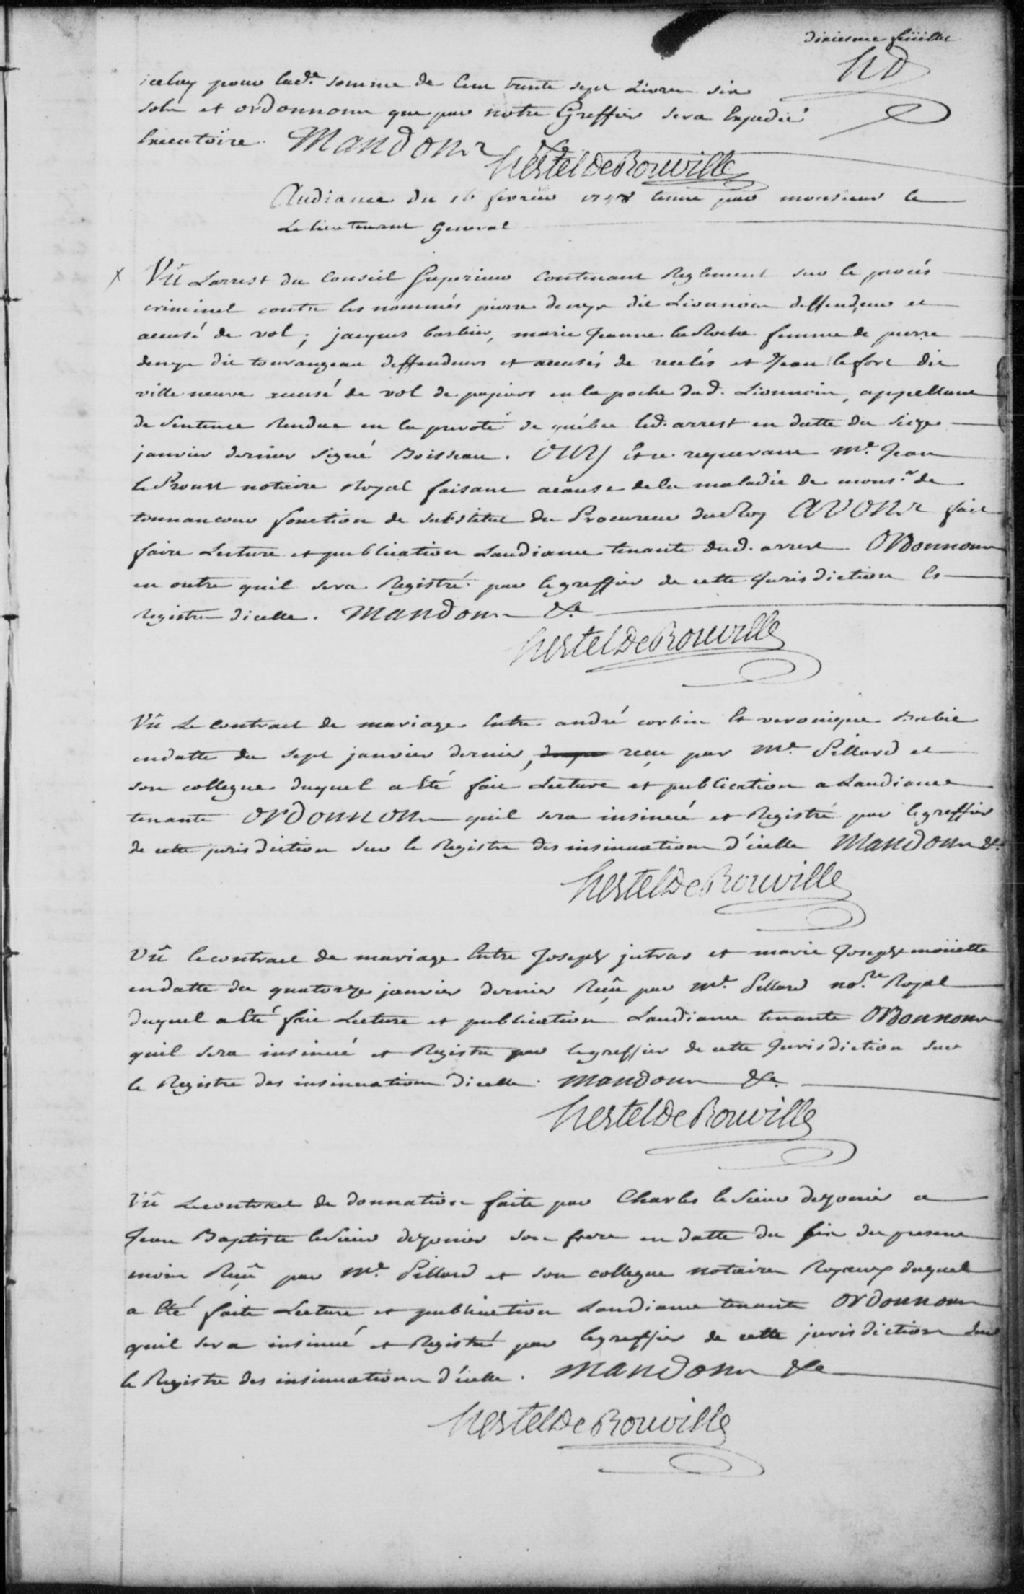 dixiesme feüillet
HD
iceluy pour lad.e somme de Cent trente sept Livres six
sols et ordonnons que par notre Greffier sera Expedié
Executoire. Mandons &a
hertel De Rouville
Audiance du 16 fevrier 1748 tenue par monsieur le
Lieutenant General
x Vû Larrest du Conseil Superieur contenant Reglement sur le procés
criminel contre les nommés pierre denys dit Lionnois deffendeur et
accusé de vol, jacques barbier, marie Jeanne la Roche femme de pierre
denys dit tourangeau deffendeurs et accusés de recelés et Jean le fort dit
ville neuve accusé de vol de papiers en la poche dud. Lionnois, appellant
de Sentence Rendue en la prevoté de québec led. arrest en datte du Seize
janvier dernier signé Boisseau. OUY Et ce requerant Me. Jean
le Proust notaire Royal faisant acause de la maladie de monsr. de
tonnancour fonction de substitut du Procureur du Roy AVONS fait
faire Lecture et publication Laudiance tenante dud. arrest ORDonnons
en outre quil sera Registré par le greffier de cette Jurisdiction Es
Registres dicelle. Mandons &a
hertel De Rouville
Vû Le contract de mariage Entre andré corbin Et veronique Babie
en datte du sept janvier dernier, recu par Me. Pillard et
son collegue duquel a Eté fait Lecture et publication a Laudiance
tenante ORDONNONS quil sera insinué et Registré par le greffier
de cette jurisdiction sur le Registre des insinuations d'icelle Mandons &a
hertel De Rouville
Vû le contract de mariage Entre Joseph jutras et marie Joseph moüette
en datte du quatorze janvier dernier Reçû par Me. Pillard no.re Royal
duquel a Eté fait Lecture et publication Laudiance tenante ORDonnons
quil sera insinué et Registré par le greffier de cette Jurisdiction sur
le Registre des insinuations dicelle. Mandons &a
hertel De Rouville
Vû Le contract de donnation faite par Charles le Sieur dezonier a
Jean Baptiste le Sieur dezonier son frere en datte du six du present
mois Reçû par Me. Pillard et son collegue notaires Royaux duquel
a Eté faite Lecture et publication Laudiance tenante ordonnons
quil sera insinué et Registré par le greffier de cette jurisdiction sur
le Registre des insinuations d'icelle. Mandons &a
hertel De Rouville